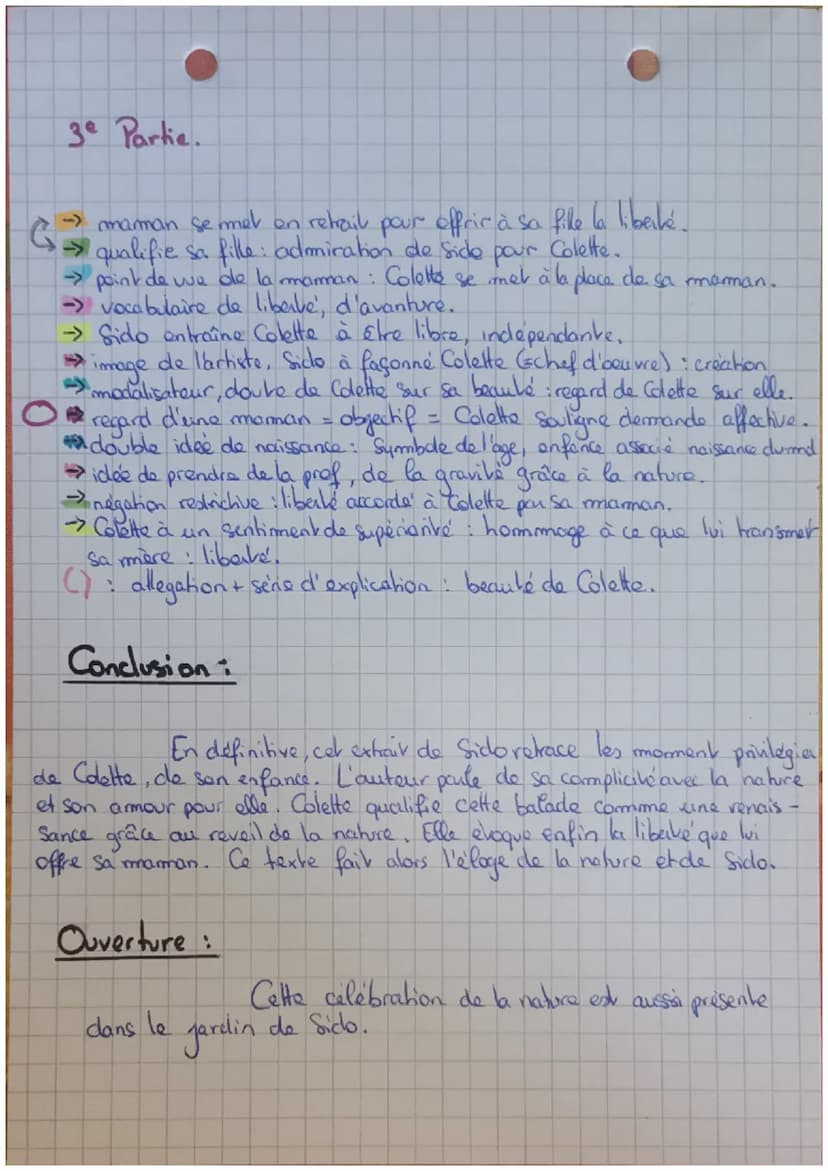 3e Partie.
-> maman se met en retrait pour offrir à sa fille la liberté.
-> qualifie sa fille : admiration de Sido pour Colette.
-> point de vue de la maman : Colette se met à la place de sa maman.
-> vocabulaire de liberté, d'avanture.
-> Sido entraîne Colette à être libre, indépendante.
-> image de l'artiste, Sido à façonné Colette (=chef d'oeuvre) : création
-> modalisateur, doute de Colette sur sa beauté : regard de Colette sur elle.
-> regard d'une maman = objectif = Colette souligne demande affective.
-> double idée de naissance : Symbole de l'age, enfance associé naissance du md
-> idée de prendre de la prof, de la gravité grâce à la nature.
-> négation restrictive : liberté accordé à Colette par sa maman.
-> Colette à un sentiment de supériorité : hommage à ce que lui transmet
sa mère : liberté.
() : allegation + série d'explication : beauté de Colette.
Conclusion :
En définitive, cet extrait de Sido retrace les moment privilégié
de Colette, de son enfance. L'auteur parle de sa complicité avec la nature
et son amour pour elle. Colette qualifie cette balade comme une renais-
sance grâce au reveil de la nature. Elle évoque enfin la liberté que lui
offre sa maman. Ce texte fait alors l'éloge de la nature et de Sido.
Ouverture :
Cette célébration de la nature est aussi présente
dans le jardin de Sido.